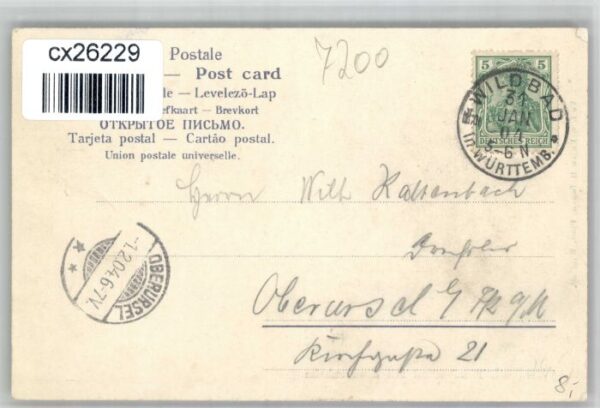 cx26229
Postale
7200
— Post card
— Levelezö-Lap
— Brevkort
ОТКРЫТОЕ ПИСЬМО.
Tarjeta postal — Cartão postal.
Union postale universelle.
5 5
DEUTSCHES REICH
WILDBAD
31
JAN
04
5-6 N.
In WÜRTTEMB.
Herrn Wilh Kaltenbach
Oberursel
Kirchgasse 21
OBERURSEL
-1.2.04.6-7V.
8,-